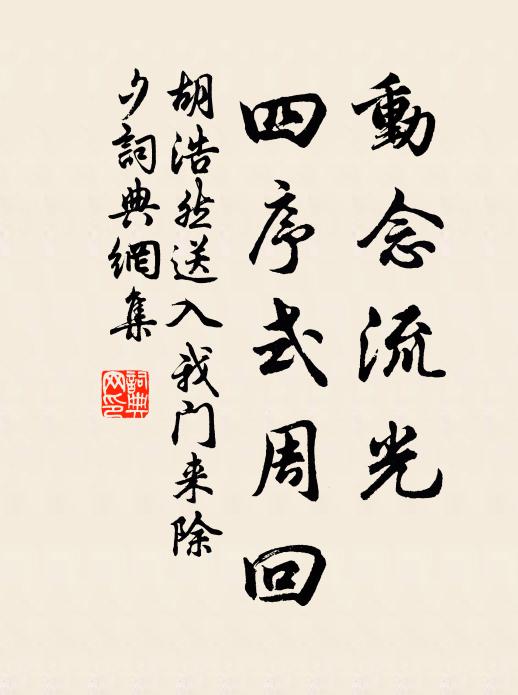 動念流光
四序式周回
胡浩然送入我门来除
夕詞典網集
詞典
网印